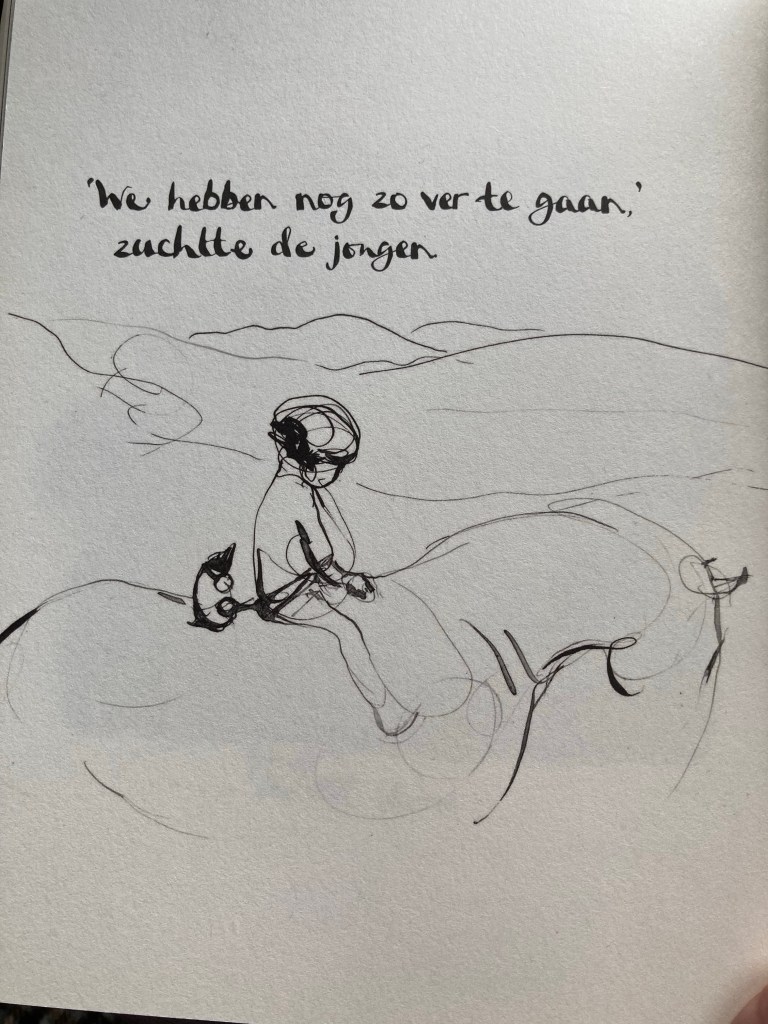 'We hebben nog zo ver te gaan,'
zuchtte de jongen.